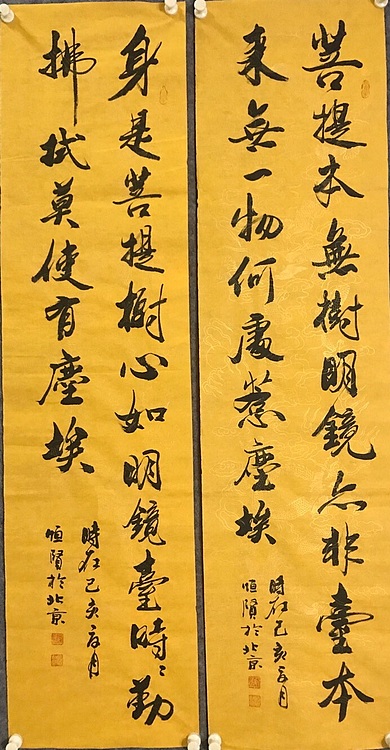 菩提本無樹明鏡亦非臺本
來無一物何處惹塵埃
時在己亥六月
恒賢於北京
身是菩提樹心如明鏡臺時〻勤
拂拭莫使有塵埃
時在己亥六月
恒賢於北京